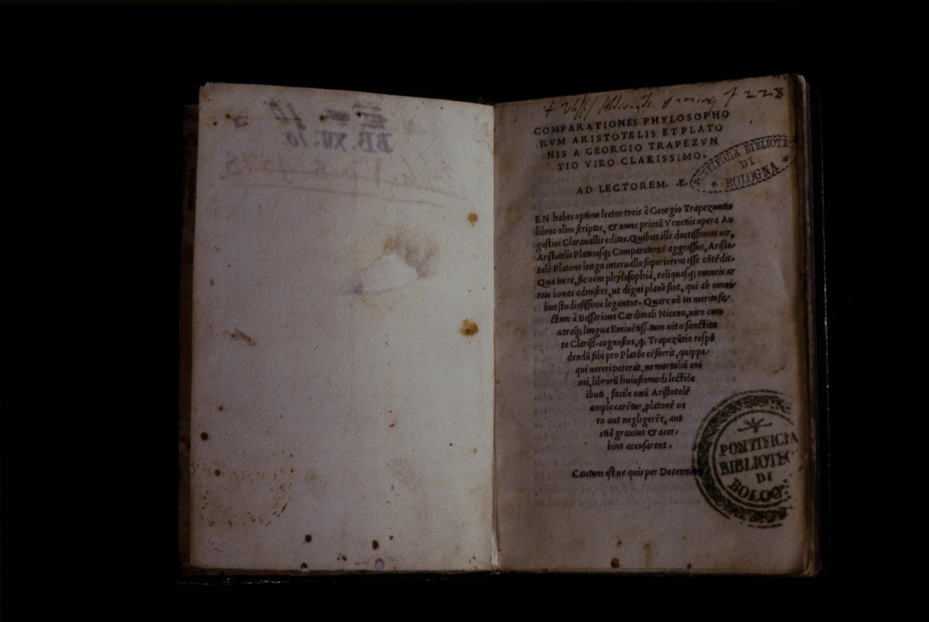 BB. XV. 10
228
COMPARATIONES PHYLOSOPHO
RVM ARISTOTELIS ET PLATO
NIS A GEORGIO TRAPEZVN
TIO VIRO CLARISSIMO.
PONTIFICIA BIBLIOTE
DI
BOLOGNA
AD LECTOREM. .E.
EN habes optime lector treis à Georgio Trapezuntio
libros olim scriptos, & nunc primũ Venetiis opera Au
gustini Clarauallis editos. Quibus ille doctissimus uir,
Aristotelis Platonisq; Comparationē aggressus, Aristo-
telē Platone longo interuallo superiorem esse cōtēdit.
Qua in re, sic uem phylosophiā, reliquasq; omneis ar
teis bonas admiscet, ut digni planè sint, qui ab omni
bus studiosissime legantur. Quare nō in merito fa-
ctum à Bessarione Cardinali Niceno, uiro cum
utraq; lingua Eminētiss. tum uitæ sanctita
te Clariss. cognosces, q, Trapezūtio respō
dendū sibi pro Platōe cēsuerit, quippe
qui uereri poterat, ne mortaliū ani
mi, librorū huiuscemodi lectiōe
ibuti, facile unū Aristotelē
amplexarētur, platonē ue
ro aut negligerēt, aut
etiā grauius & acer-
bius accusarent.
Cautum est ne quis per Decennium
PONTIFICIA
BIBLIOTEC
DI
BOLOGN